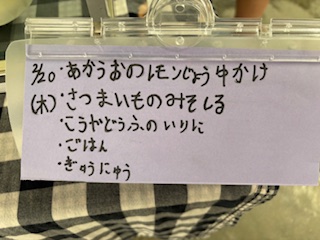 2/20・あかうおのレモンじょうゆかけ
(木)・さつまいものみそしる
・こうやどうふのいりに
・ごはん
・ぎゅうにゅう